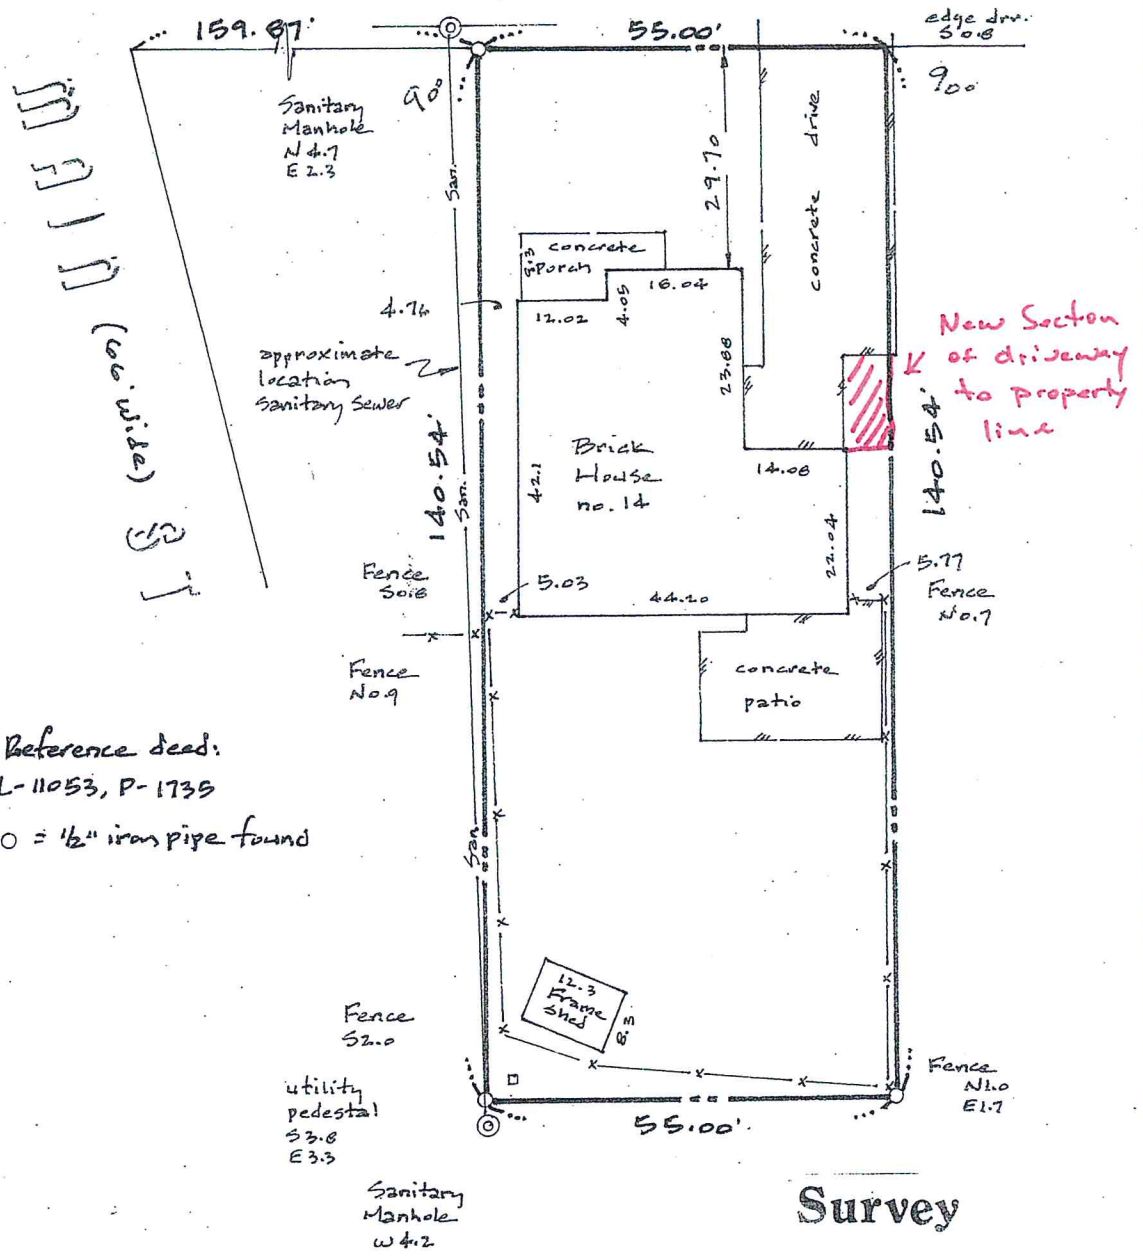 159.87'
55.00'
edge drv.
S 0.8
90°
90°
Sanitary
Manhole
N 4.7
E 2.3
San.
29.70
concrete drive
MAIN (66' wide) ST
concrete
Porch
16.04
4.76
12.02
4.05
approximate
location
Sanitary Sewer
23.88
New Secton
of driveway
to property
line
140.54'
San.
42.1
Brick
House
no. 14
14.08
140.54'
22.04
Fence
S0.8
5.03
44.20
5.77
Fence
N0.7
Fence
N0.9
concrete
patio
Reference deed:
L-11053, P-1735
O = 1/2" iron pipe found
San.
12.3
Frame
shed
8.3
Fence
S2.0
utility
pedestal
S3.8
E3.3
Fence
N1.0
E1.7
55.00'
Sanitary
Manhole
W 4.2
Survey